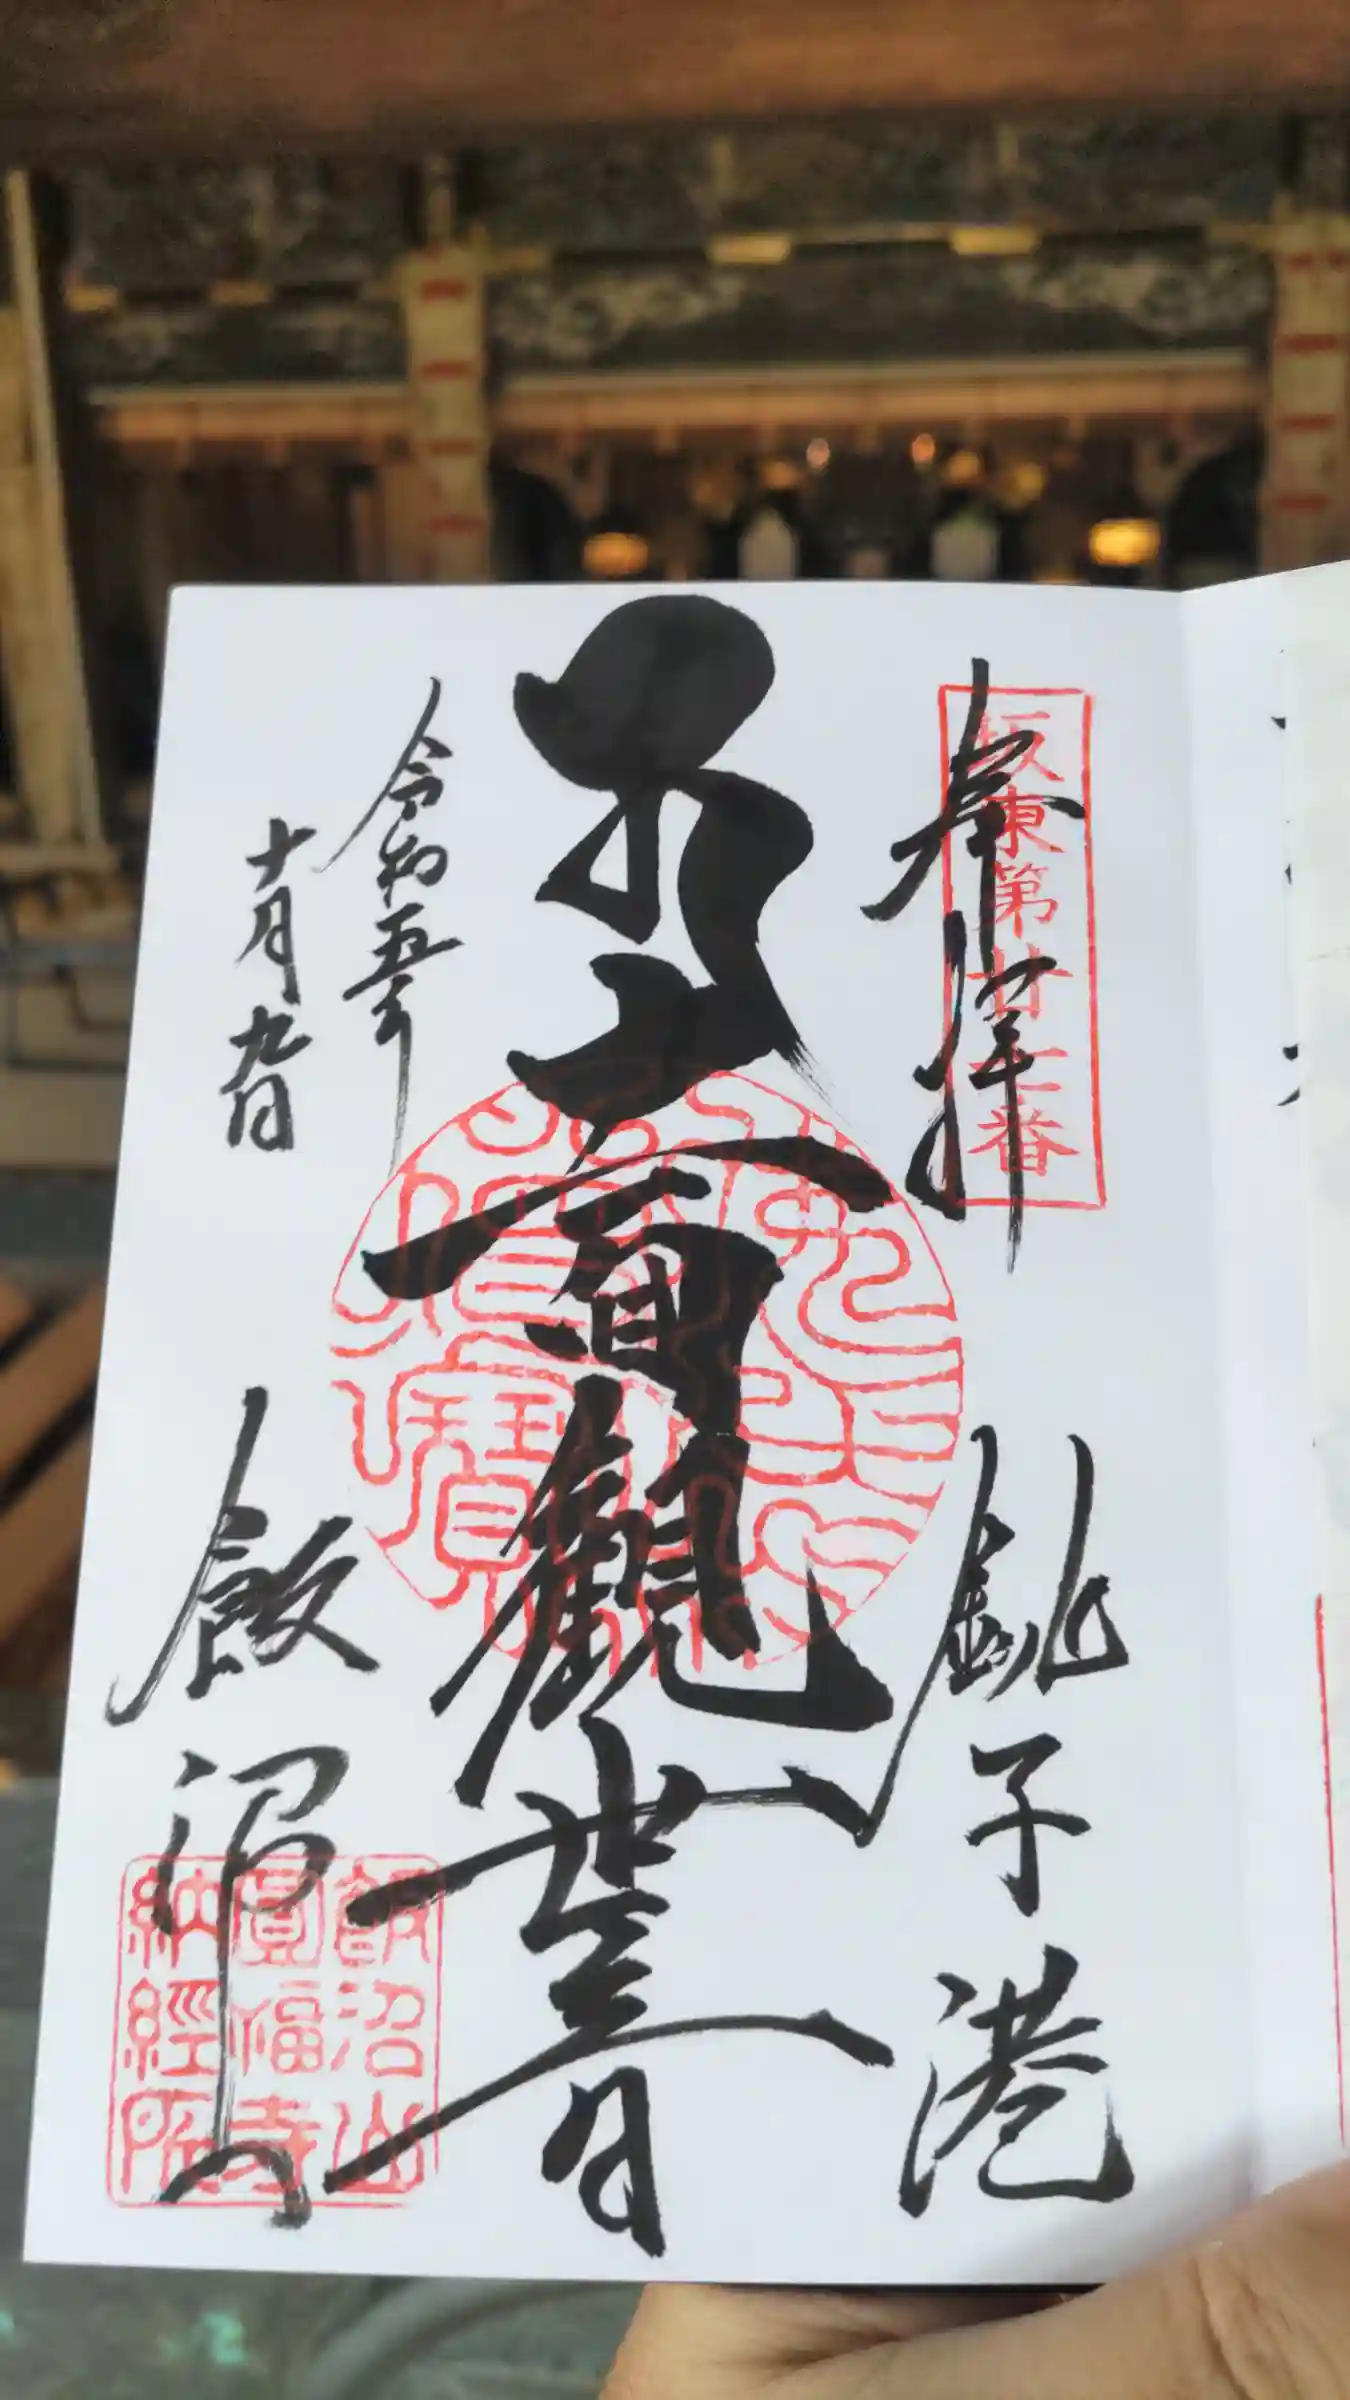 坂東第廿七番
奉拝
銚子港
十一面観世音
令和五年
十月九日
飯沼
飯沼山
圓福寺
納経所